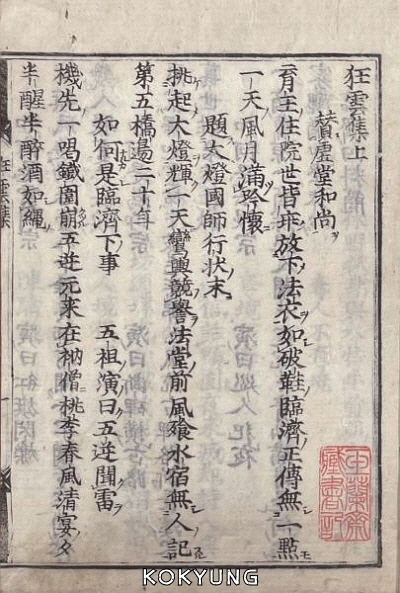 狂雲集上
賛虛堂和尚
育王住院世皆乖放下法衣如破鞋臨濟正傳無一點
一天風月滿吟懷
題大燈國師行状末
挑起大燈輝一天鸞輿競譽法堂前風飡水宿無人記
第五橋邊二十年
如何是臨濟下事 五祖演曰五逆聞雷
機先一喝鐵圍崩五逆元來在衲僧桃李春風清宴夕
半醒半醉酒如繩
狂雲集
藏書記
KOKYUNG